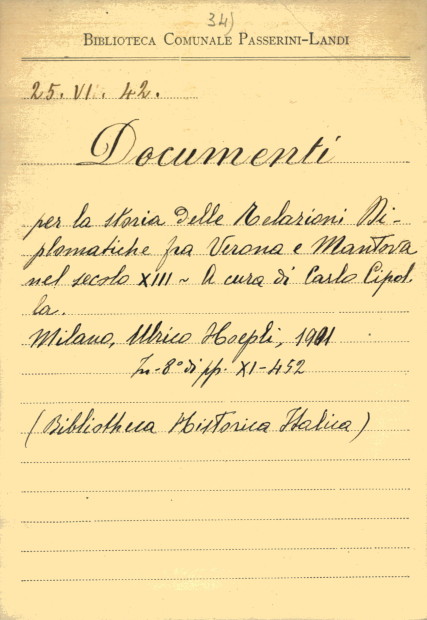 34)
BIBLIOTECA COMUNALE PASSERINI-LANDI
25. VI. 42.
Documenti
per la storia delle Relazioni Di-
plomatiche fra Verona e Mantova
nel secolo XIII ~ A cura di Carlo Cipol-
la.
Milano, Ulrico Hoepli, 1901
In-8° di pp. XI-452
(Bibliotheca Historica Italica)